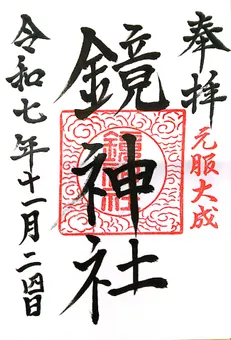 奉拝
元服大成
鏡神社
令和七年十一月二四日